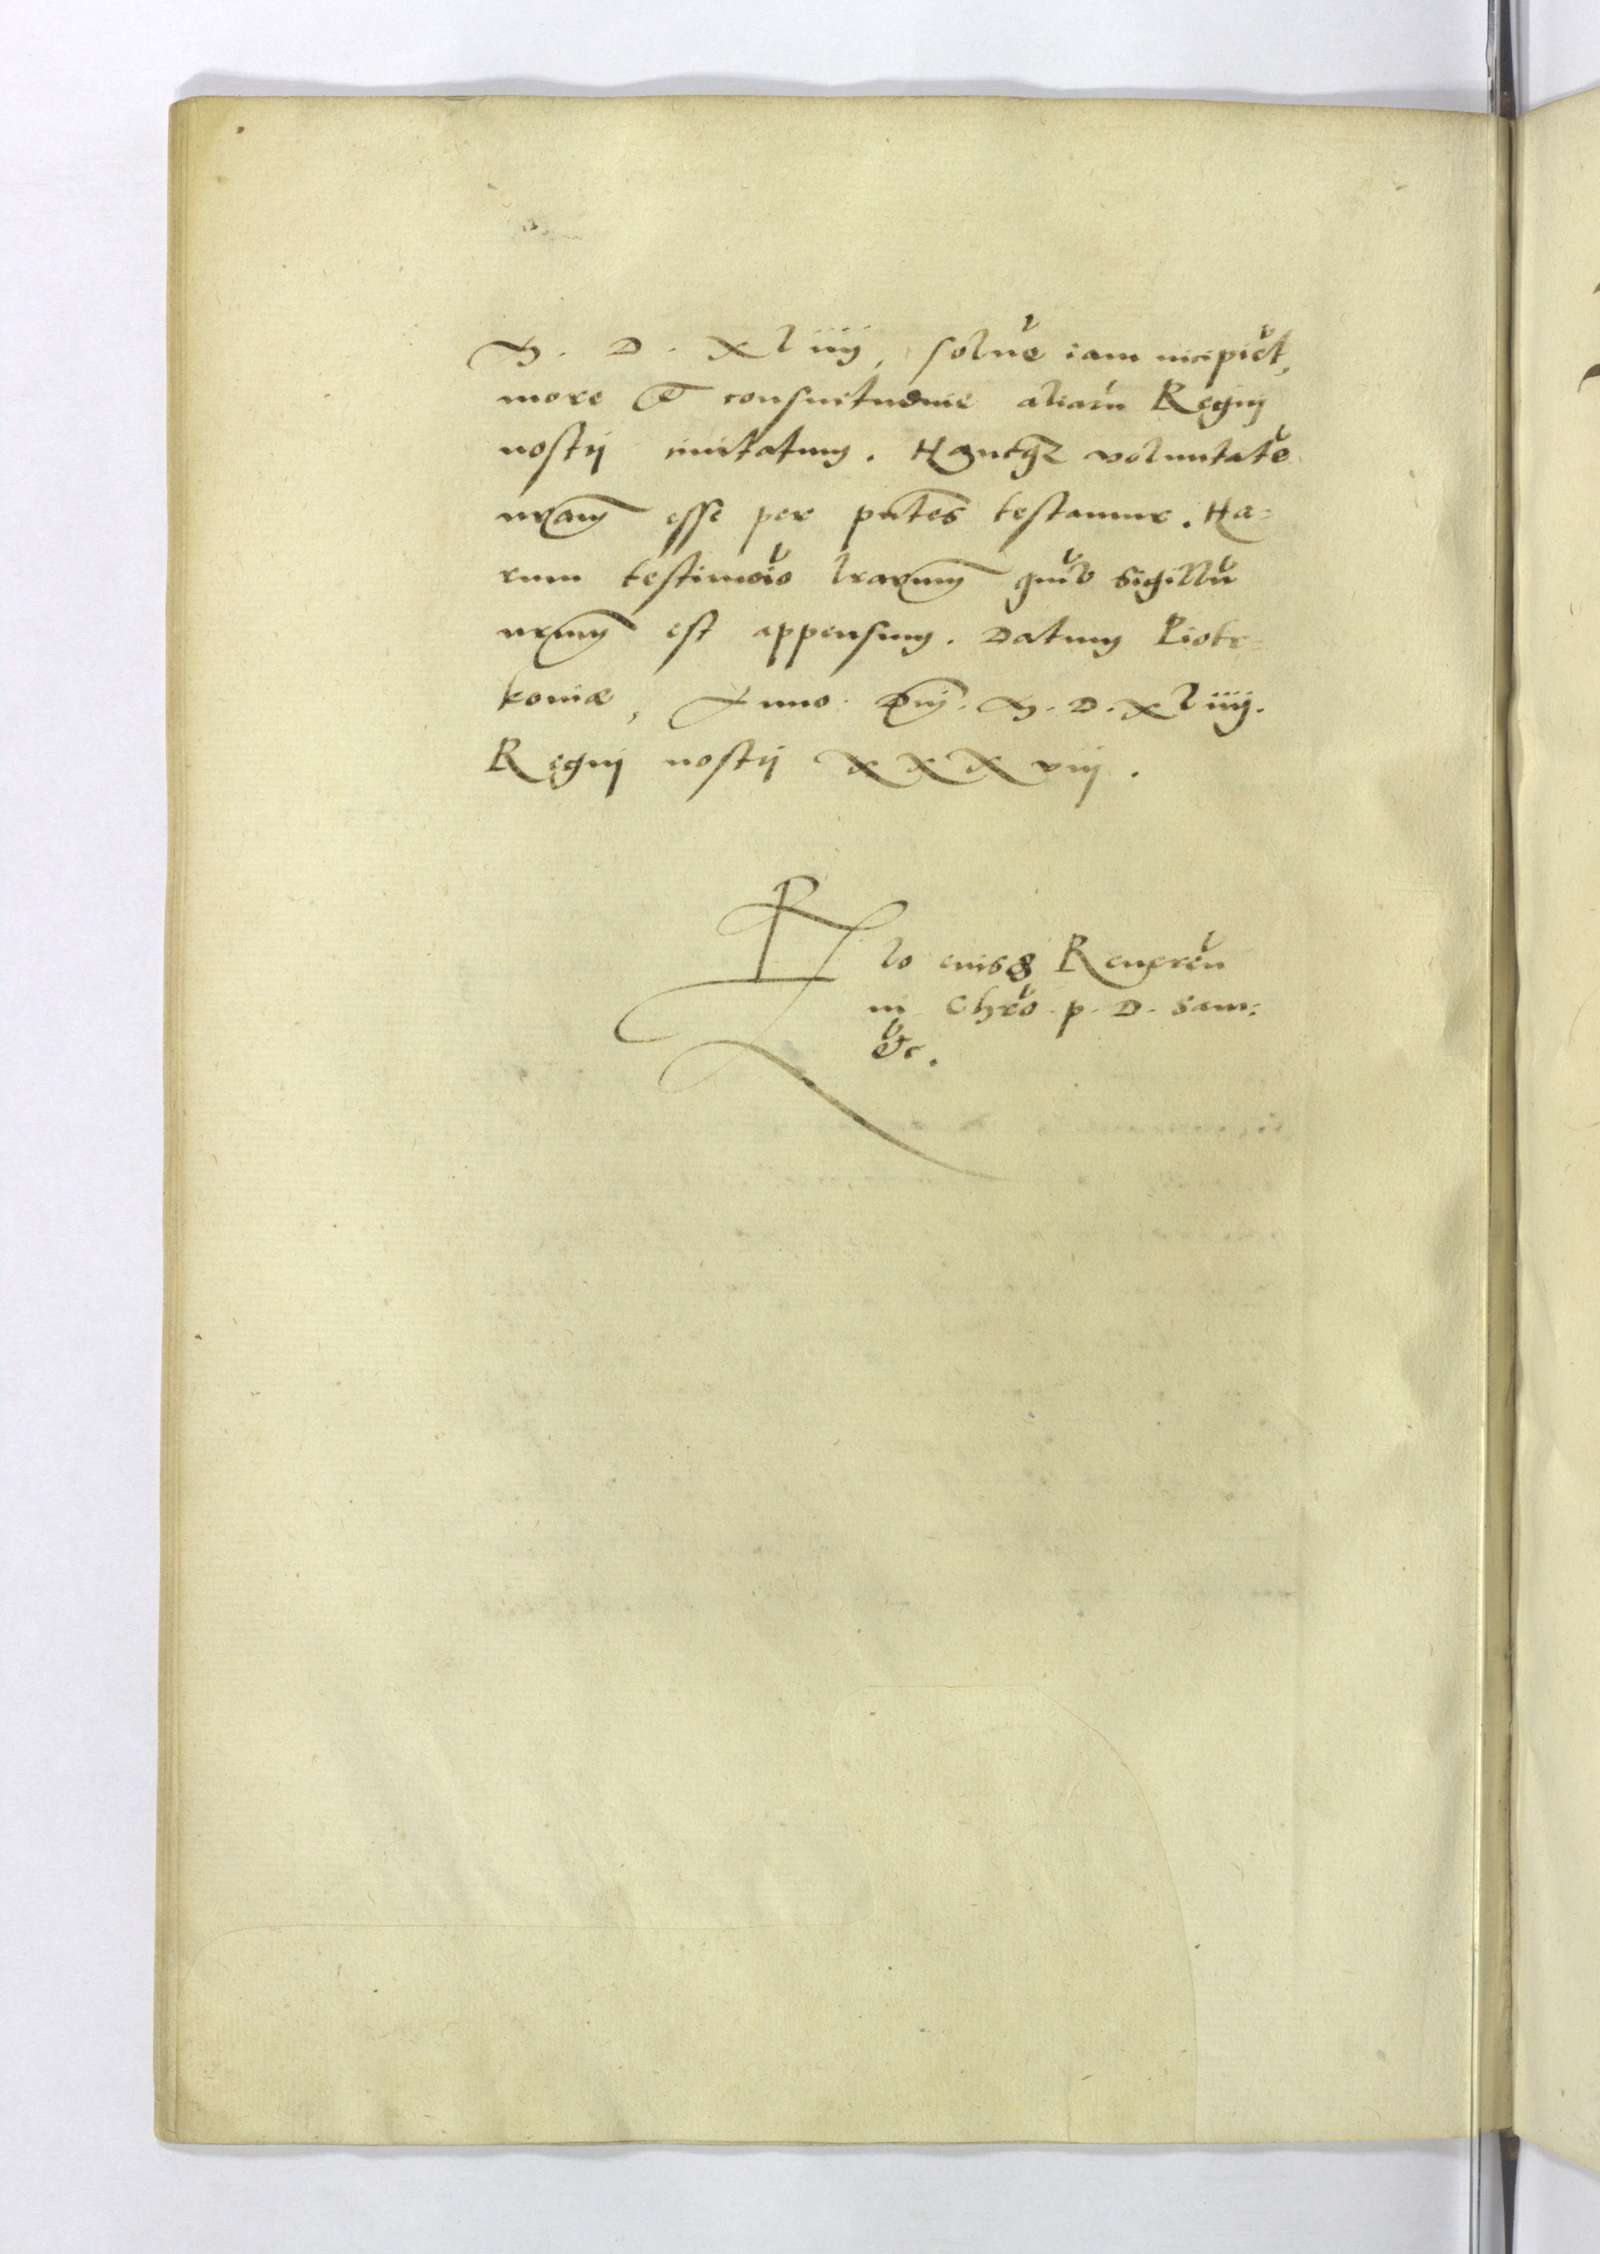 M. D. XLiiij, solue̅ iam incipie̅t,
more & consuetudine aliaru̅ Regnj
nostrj ciuitatum. Hancq3 voluntate̅
nr̅am esse per pn̅tes testamur. Ha=
rum testimoi̅o lr̅arum quib̅ sigillu̅
nr̅um est appensum. Datum Piotr=
kouiæ, Anno Dn̅j. M. D. XLiiij.
Regnj nostrj XXXviij.
R̅lo eiusd Reueren̅
in Chr̅o p. D. Sam:
&c̅.